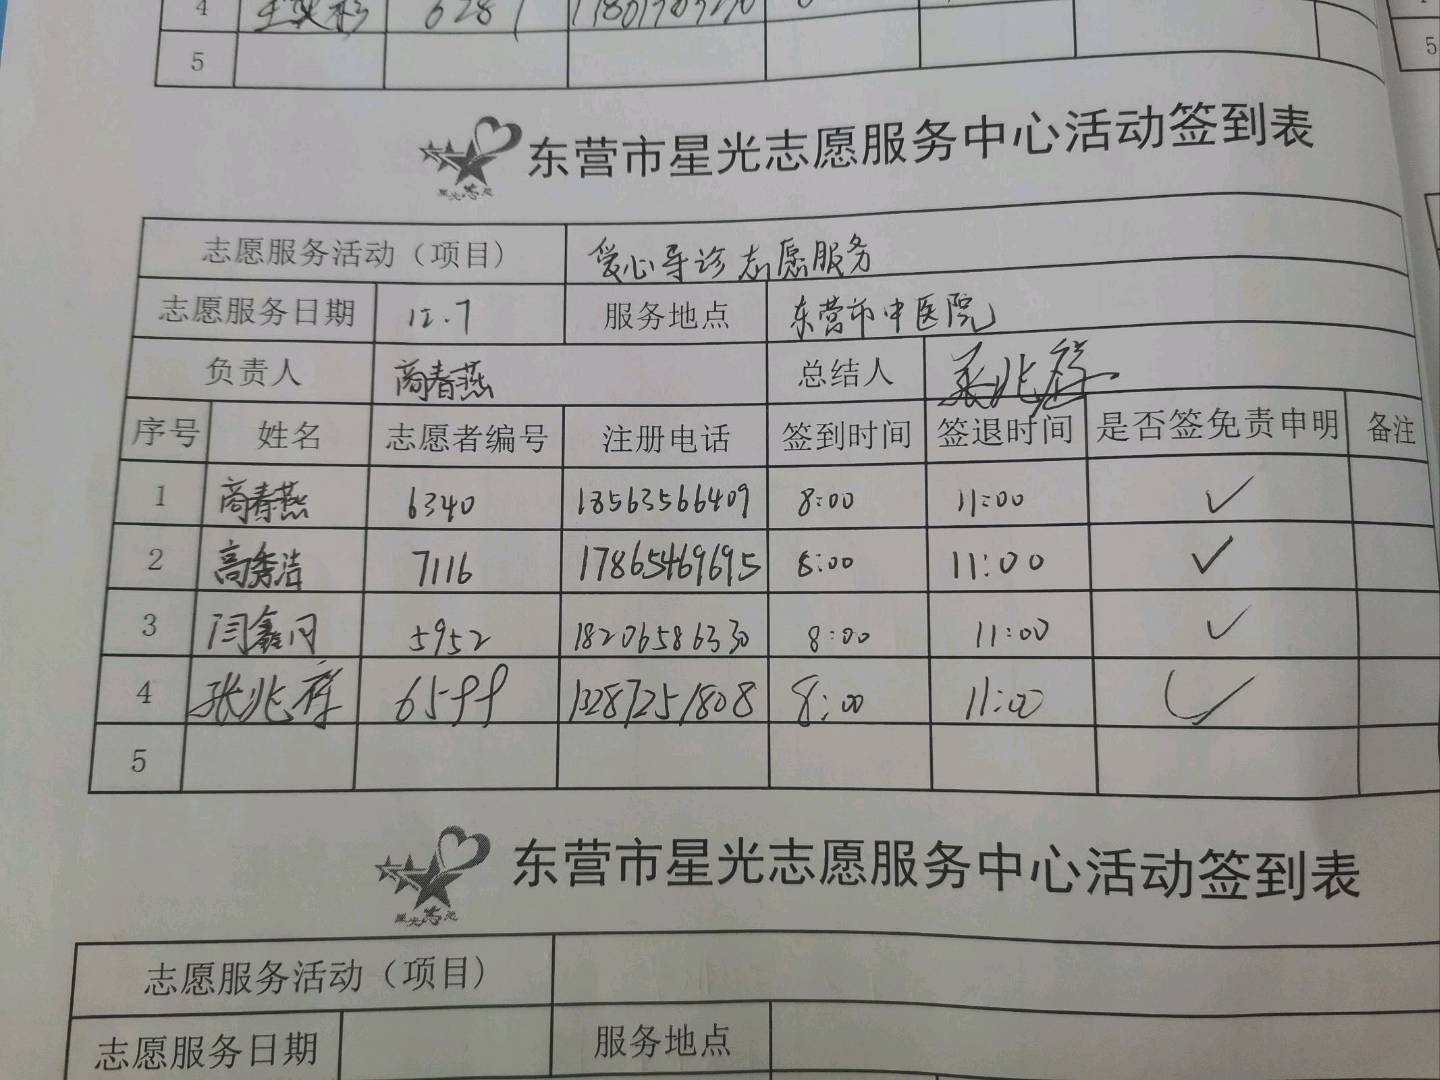 4 6281
5
东营市星光志愿服务中心活动签到表
星光志愿
志愿服务活动（项目） 爱心导诊志愿服务
志愿服务日期 12.7 服务地点 东营市中医院
负责人 商春燕 总结人 张兆祥
序号 姓名 志愿者编号 注册电话 签到时间 签退时间 是否签免责申明 备注
1 商春燕 6340 18563566409 8:00 11:00 ✓
2 高秀洁 7116 17865469695 8:00 11:00 ✓
3 闫鑫 5952 18206586330 8:00 11:00 ✓
4 张兆祥 6599 13287251808 8:00 11:00 ✓
5
东营市星光志愿服务中心活动签到表
星光志愿
志愿服务活动（项目）
志愿服务日期 服务地点